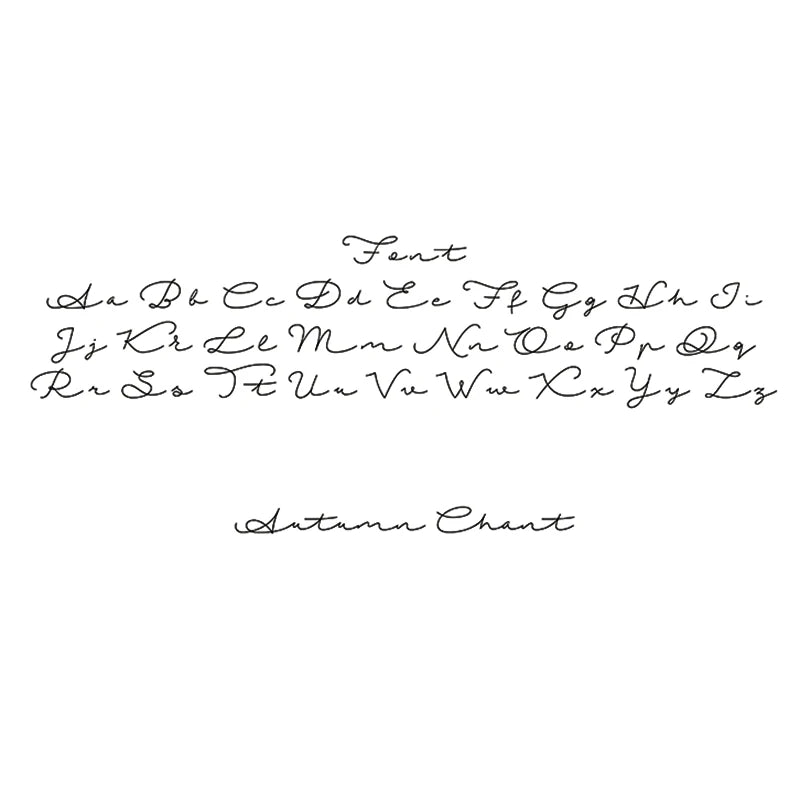 Font
Aa Bb Cc Dd Ee Ff Gg Hh Ii
Jj Kk Ll Mm Nn Oo Pp Qq
Rr Ss Tt Uu Vv Ww Xx Yy Zz
Autumn Chant